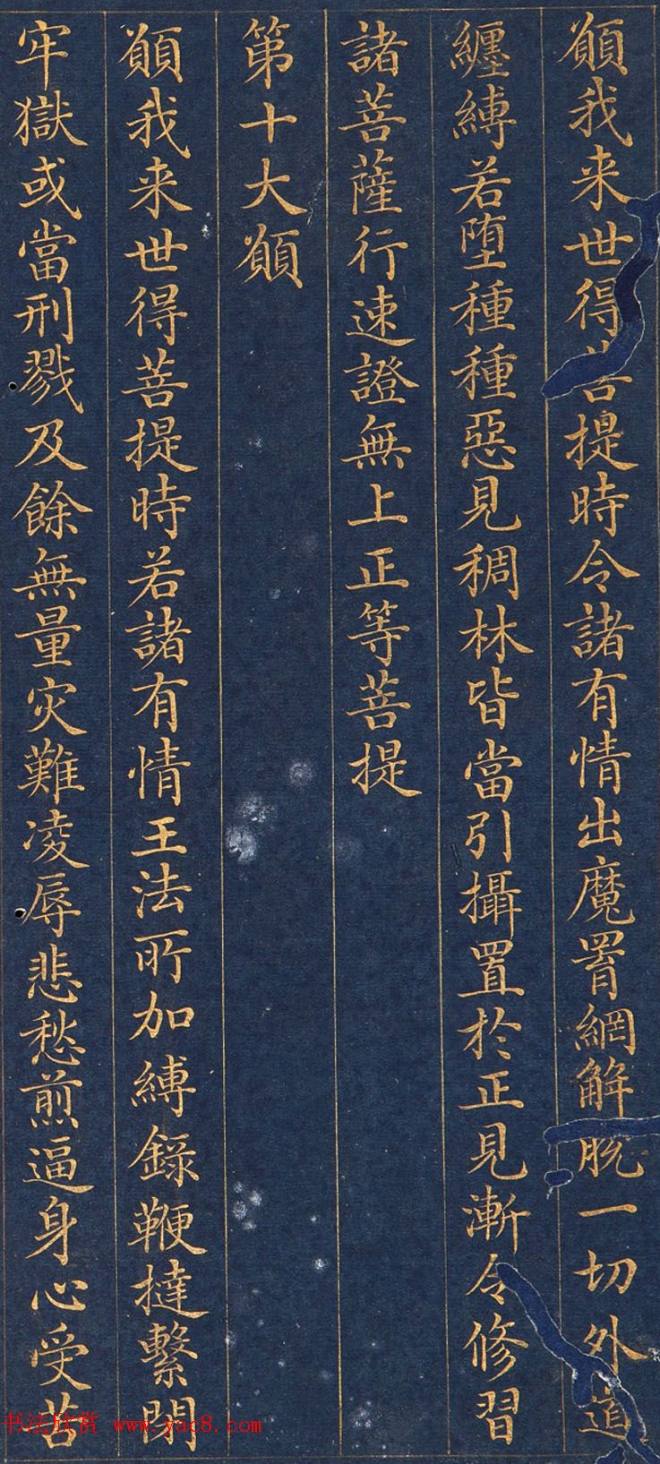 願我来世得菩提時令諸有情出魔罥網解脫一切外道
纏縛若墮種種惡見稠林皆當引攝置於正見漸令修習
諸菩薩行速證無上正等菩提
第十大願
願我来世得菩提時若諸有情王法所加縛錄鞭撻繫閉
牢獄或當刑戮及餘無量灾難凌辱悲愁煎逼身心受苦
书法欣赏 www.yac8.com